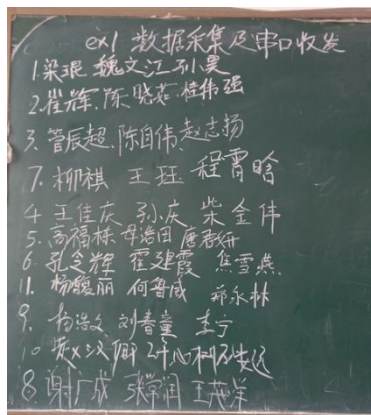 ex1 数据采集及串口收发
1.梁琨 魏文江 孙昊
2.崔辉 陈晓茹 桂伟强
3.管辰超 陈自伟 赵志扬
7.柳祺 王珏 程霄晗
4.王佳庆 孙庆 柴金伟
5.高福栋 唐若妍
6.孔令辉 霍建霞 焦雪燕
11.杨馥丽 何鲁威 郑永林
9.杨浩文 刘春童 李宁
10.
8.谢广成 张学润 王英洋